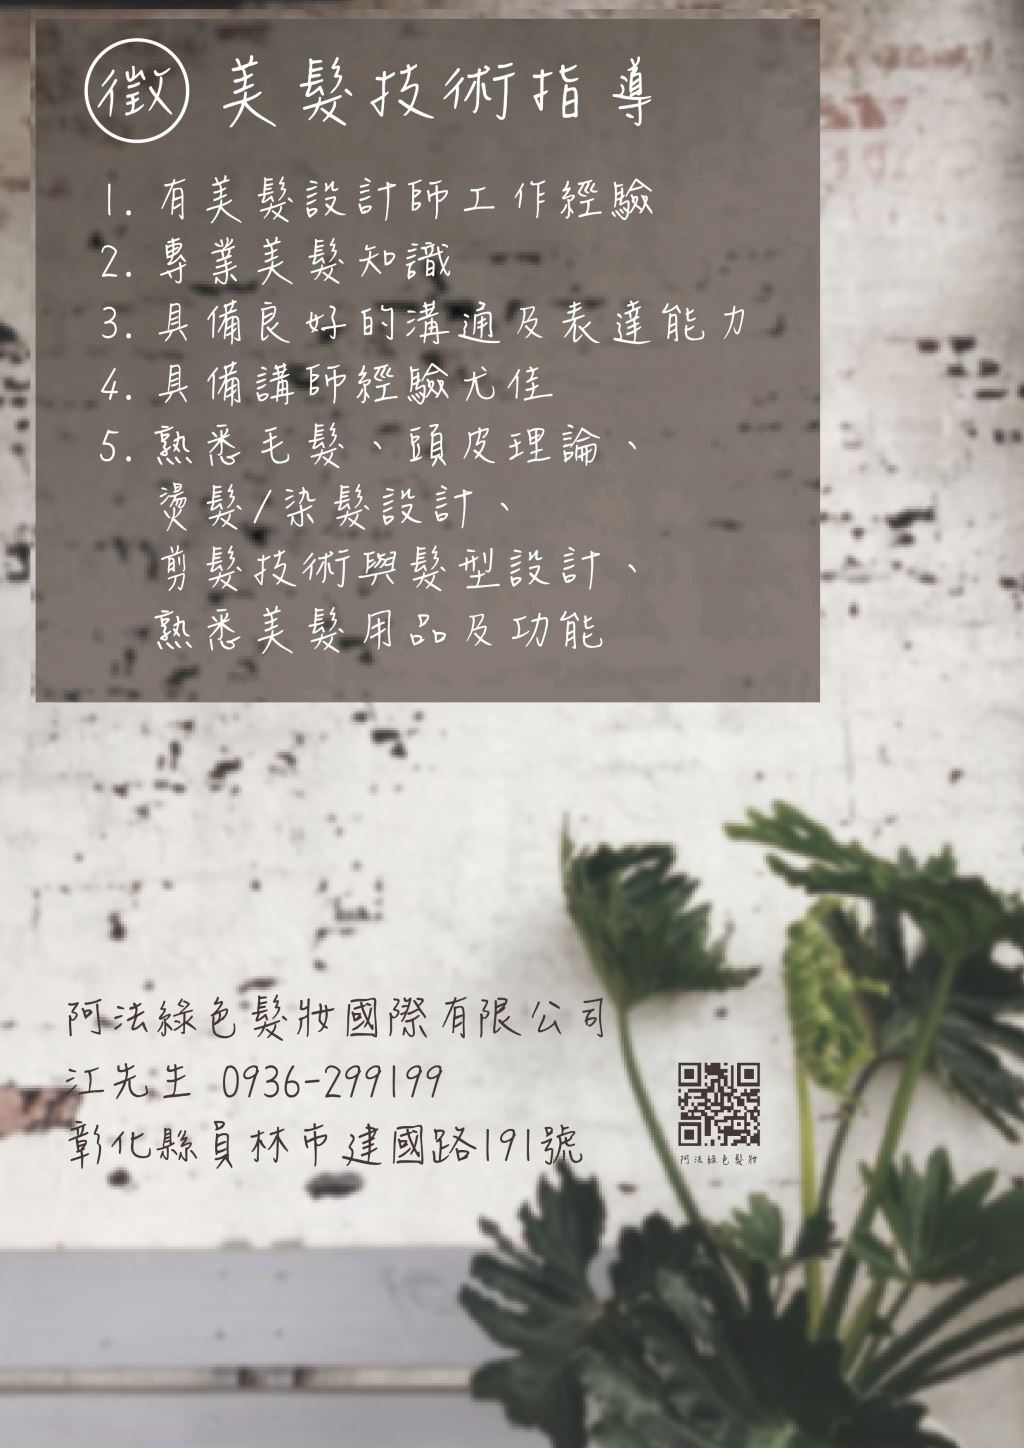 徵 美髮技術指導
1. 有美髮設計師工作經驗
2. 專業美髮知識
3. 具備良好的溝通及表達能力
4. 具備講師經驗尤佳
5. 熟悉毛髮、頭皮理論、
燙髮/染髮設計、
剪髮技術與髮型設計、
熟悉美髮用品及功能
阿法綠色髮妝國際有限公司
江先生 0936-299199
彰化縣員林市建國路191號
阿法綠色髮妝